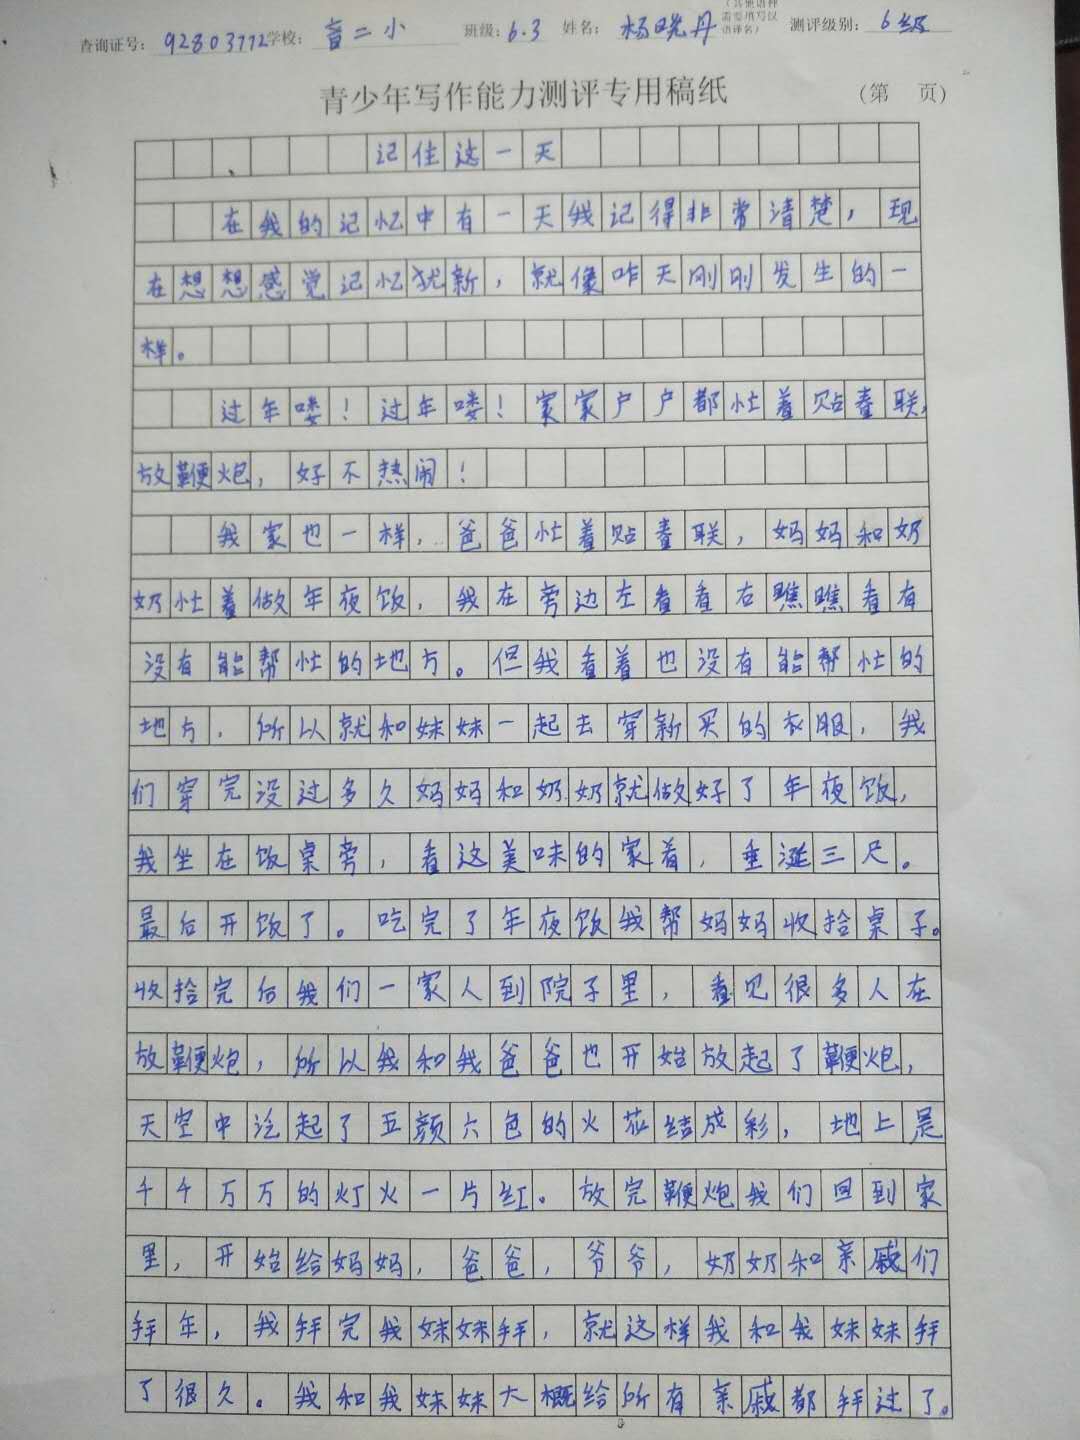 （其他语种
需要填写汉
语译名）
查询证号： 92803772 学校： 育二小 班级：6.3 姓名： 杨晓丹 测评级别： 6级
青少年写作能力测评专用稿纸 （第 页）
记住这一天
在我的记忆中有一天我记得非常清楚，现
在想想感觉记忆犹新，就像昨天刚刚发生的一
样。
过年喽！过年喽！家家户户都忙着贴春联，
放鞭炮，好不热闹！
我家也一样，爸爸忙着贴春联，妈妈和奶
奶忙着做年夜饭，我在旁边左看看右瞧瞧看有
没有能帮忙的地方。但我看着也没有能帮忙的
地方，所以就和妹妹一起去穿新买的衣服，我
们穿完没过多久妈妈和奶奶就做好了年夜饭，
我坐在饭桌旁，看这美味的家着，垂涎三尺。
最后开饭了。吃完了年夜饭我帮妈妈收拾桌子。
收拾完后我们一家人到院子里，看见很多人在
放鞭炮，所以我和我爸爸也开始放起了鞭炮，
天空中泛起了五颜六色的火花结成彩，地上是
千千万万的灯火一片红。放完鞭炮我们回到家
里，开始给妈妈，爸爸，爷爷，奶奶和亲戚们
拜年，我拜完我妹妹拜，就这样我和我妹妹拜
了很久。我和我妹妹大概给所有亲戚都拜过了。